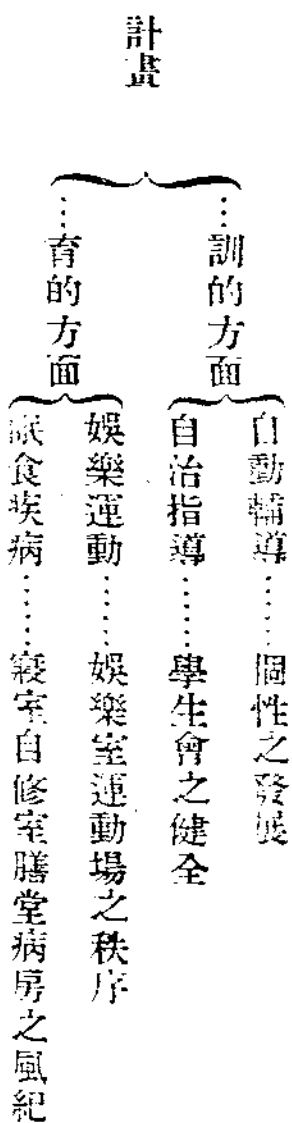 計畫
訓的方面
自動輔導……個性之發展
自治指導……學生會之健全
育的方面
娛樂運動……娛樂室運動場之秩序
眠食疾病……寢室自修室膳堂病房之風紀